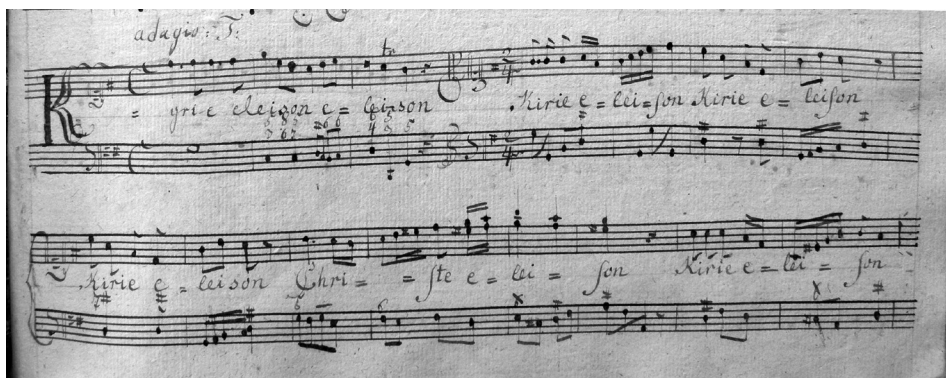 adagio: T:
tr
Kyri-e eleison e = leison Kirie e = lei = son Kirie e = leison
Kirie e = leison Chri = = ste e = lei = son Kirie e = lei = son